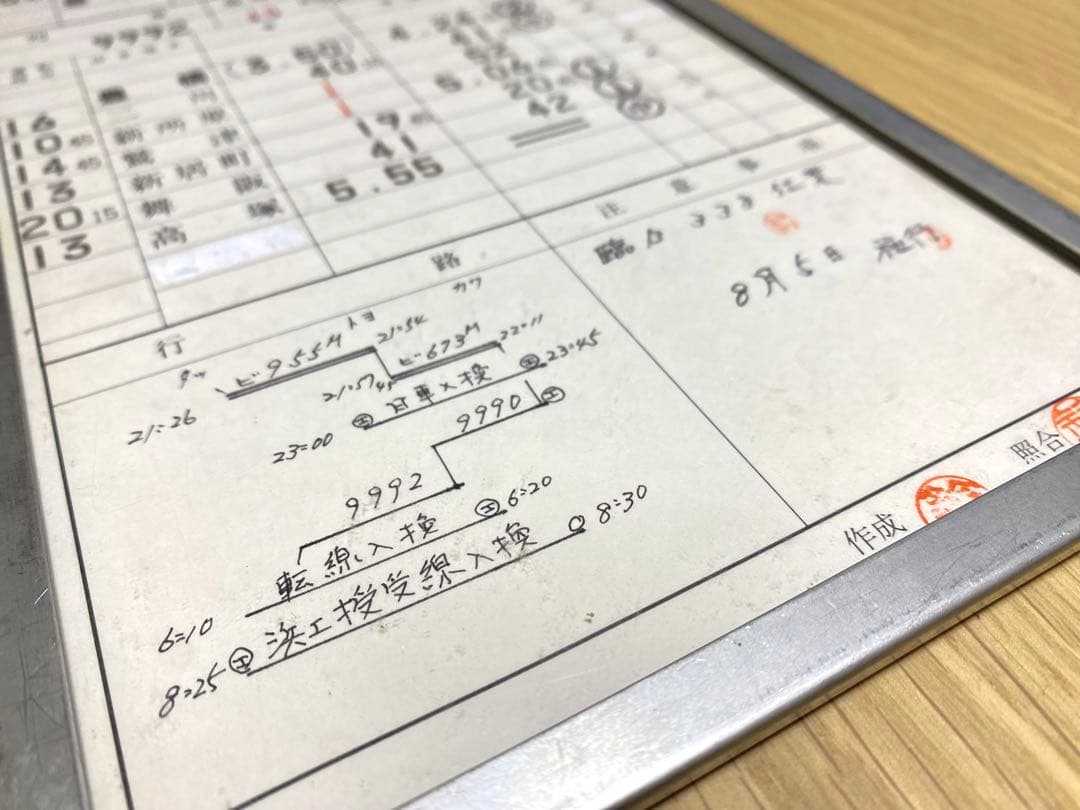 9992
4.24
(3.50)
40
5.04
20
42
16
10 45 新所原
19 45
14 45 鷲津
41
13 新居町
5.55
20 15 舞阪
13 高塚
注意事項
臨A
8月5日 施行
行路
カワ
トヨ
ビ955M
21:54
ビ673M
22:11
21:26
21:57 45
日車入換
23:45
23:00
9990
9992
転線入換
6:20
6:10
浜工授受線入換
8:30
8:25
作成
照合